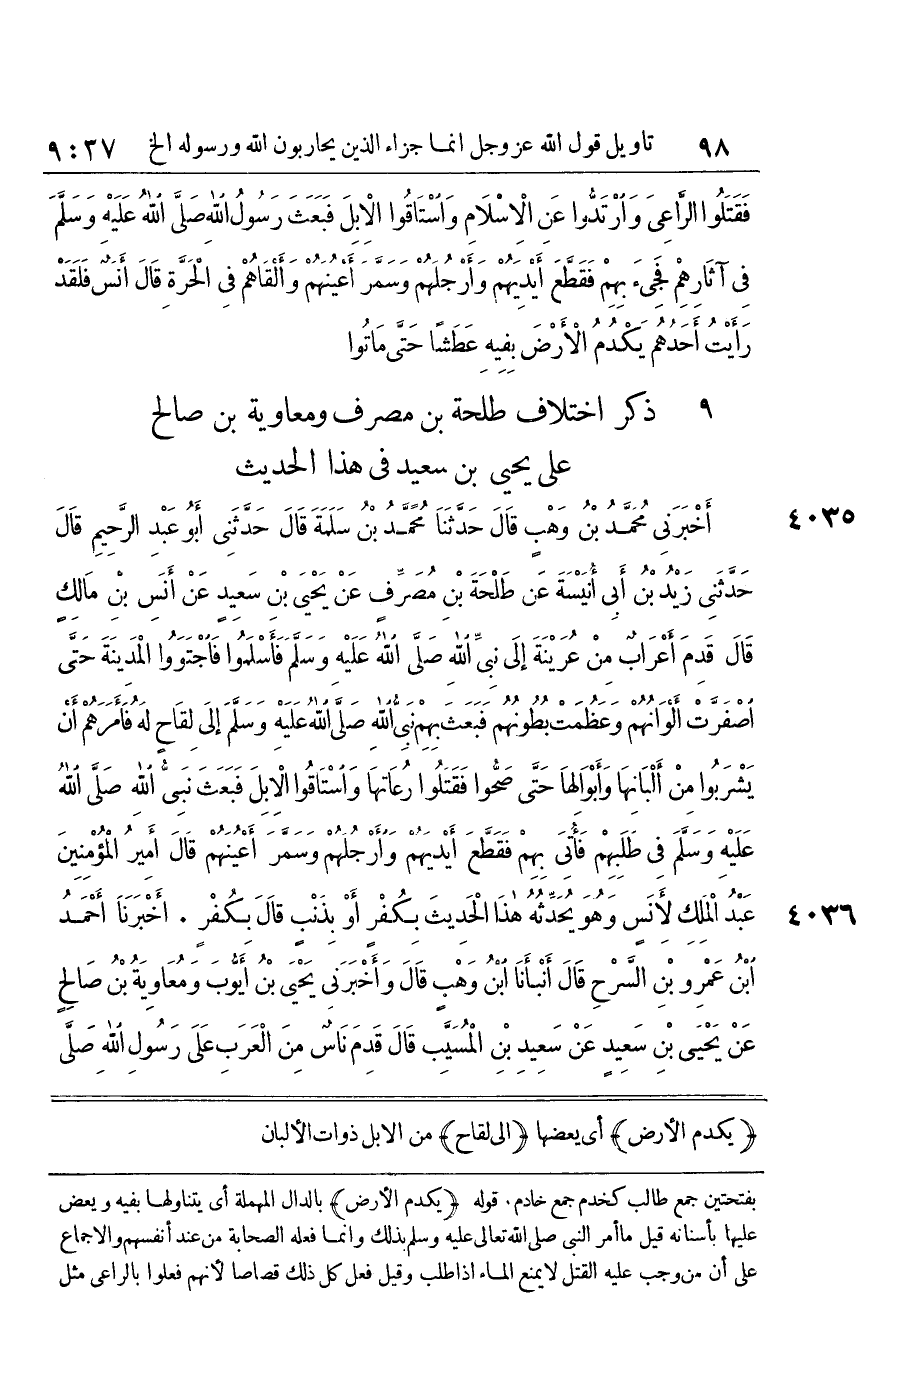 ٩٨ تاويل قول الله عز وجل انما جزاء الذين يحاربون الله ورسوله الخ ٣٧ : ٩
فَقَتَلُوا الرَّاعِىَ وَارْتَدُّوا عَنِ الْاِسْلَامِ وَاسْتَاقُوا الْاِبِلَ فَبَعَثَ رَسُولُ اللّٰهِ صَلَّى اللّٰهُ عَلَيْهِ وَسَلَّمَ
فِى آثَارِهِمْ فَجِىءَ بِهِمْ فَقَطَّعَ أَيْدِيَهُمْ وَأَرْجُلَهُمْ وَسَمَرَ أَعْيُنَهُمْ وَأَلْقَاهُمْ فِى الْحَرَّةِ قَالَ أَنَسٌ فَلَقَدْ
رَأَيْتُ أَحَدَهُمْ يَكْدُمُ الْأَرْضَ بِفِيهِ عَطَشًا حَتَّى مَاتُوا
٩ ذكر اختلاف طلحة بن مصرف ومعاوية بن صالح
على يحيى بن سعيد فى هذا الحديث
أَخْبَرَنِى مُحَمَّدُ بْنُ وَهْبٍ قَالَ حَدَّثَنَا مُحَمَّدُ بْنُ سَلَمَةَ قَالَ حَدَّثَنِى أَبُو عَبْدِ الرَّحِيمِ قَالَ ٤٠٣٥
حَدَّثَنِى زَيْدُ بْنُ أَبِى أُنَيْسَةَ عَنْ طَلْحَةَ بْنِ مُصَرِّفٍ عَنْ يَحْيَى بْنِ سَعِيدٍ عَنْ أَنَسِ بْنِ مَالِكٍ
قَالَ قَدِمَ أَعْرَابٌ مِنْ عُرَيْنَةَ إِلَى نَبِىِّ اللّٰهِ صَلَّى اللّٰهُ عَلَيْهِ وَسَلَّمَ فَأَسْلَمُوا فَاجْتَوَوُا الْمَدِينَةَ حَتَّى
اصْفَرَّتْ أَلْوَانُهُمْ وَعَظُمَتْ بُطُونُهُمْ فَبَعَثَ بِهِمْ نَبِىُّ اللّٰهِ صَلَّى اللّٰهُ عَلَيْهِ وَسَلَّمَ إِلَى لِقَاحٍ لَهُ فَأَمَرَهُمْ أَنْ
يَشْرَبُوا مِنْ أَلْبَانِهَا وَأَبْوَالِهَا حَتَّى صَحُّوا فَقَتَلُوا رُعَاتَهَا وَاسْتَاقُوا الْاِبِلَ فَبَعَثَ نَبِىُّ اللّٰهِ صَلَّى اللّٰهُ
عَلَيْهِ وَسَلَّمَ فِى طَلَبِهِمْ فَأُتِىَ بِهِمْ فَقَطَّعَ أَيْدِيَهُمْ وَأَرْجُلَهُمْ وَسَمَرَ أَعْيُنَهُمْ قَالَ أَمِيرُ الْمُؤْمِنِينَ
عَبْدُ الْمَلِكِ لِأَنَسٍ وَهُوَ يُحَدِّثُهُ هٰذَا الْحَدِيثَ بِكُفْرٍ أَوْ بِذَنْبٍ قَالَ بِكُفْرٍ . أَخْبَرَنَا أَحْمَدُ ٤٠٣٦
ابْنُ عَمْرِو بْنِ السَّرْحِ قَالَ أَنْبَأَنَا ابْنُ وَهْبٍ قَالَ وَأَخْبَرَنِى يَحْيَى بْنُ أَيُّوبَ وَمُعَاوِيَةُ بْنُ صَالِحٍ
عَنْ يَحْيَى بْنِ سَعِيدٍ عَنْ سَعِيدِ بْنِ الْمُسَيَّبِ قَالَ قَدِمَ نَاسٌ مِنَ الْعَرَبِ عَلَى رَسُولِ اللّٰهِ صَلَّى
﴿ يكدم الأرض ﴾ أى يعضها ﴿ الى لقاح ﴾ من الابل ذوات الألبان
بفتحتين جمع طالب كخدم جمع خادم . قوله ﴿ يكدم الأرض ﴾ بالدال المهملة أى يتناولها بفيه ويعض
عليها بأسنانه قيل ماأمر النبى صلى الله تعالى عليه وسلم بذلك وانما فعله الصحابة من عند أنفسهم والاجماع
على أن من وجب عليه القتل لايمنع الماء اذا طلب وقيل فعل كل ذلك قصاصا لأنهم فعلوا بالراعى مثل